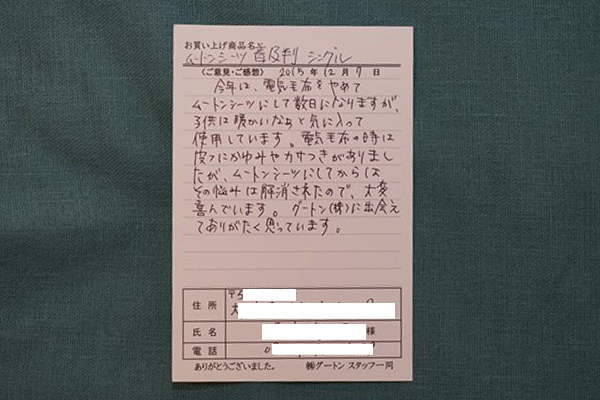 お買い上げ商品名
ムートンシーツ 普及判 シングル
〈ご意見・ご感想〉 2015年12月7日
今年は、電気毛布をやめて
ムートンシーツにして数日になりますが、
子供は暖かいなあと気に入って
使用しています。電気毛布の時は
皮フにかゆみやカサつきがありまし
たが、ムートンシーツにしてからは
その悩みは解消されたので、大変
喜んでいます。グートン(株)に出会え
てありがたく思っています。
住所 〒5
大
氏名 様
電話 0
ありがとうございました。 ㈱グートン スタッフ一同